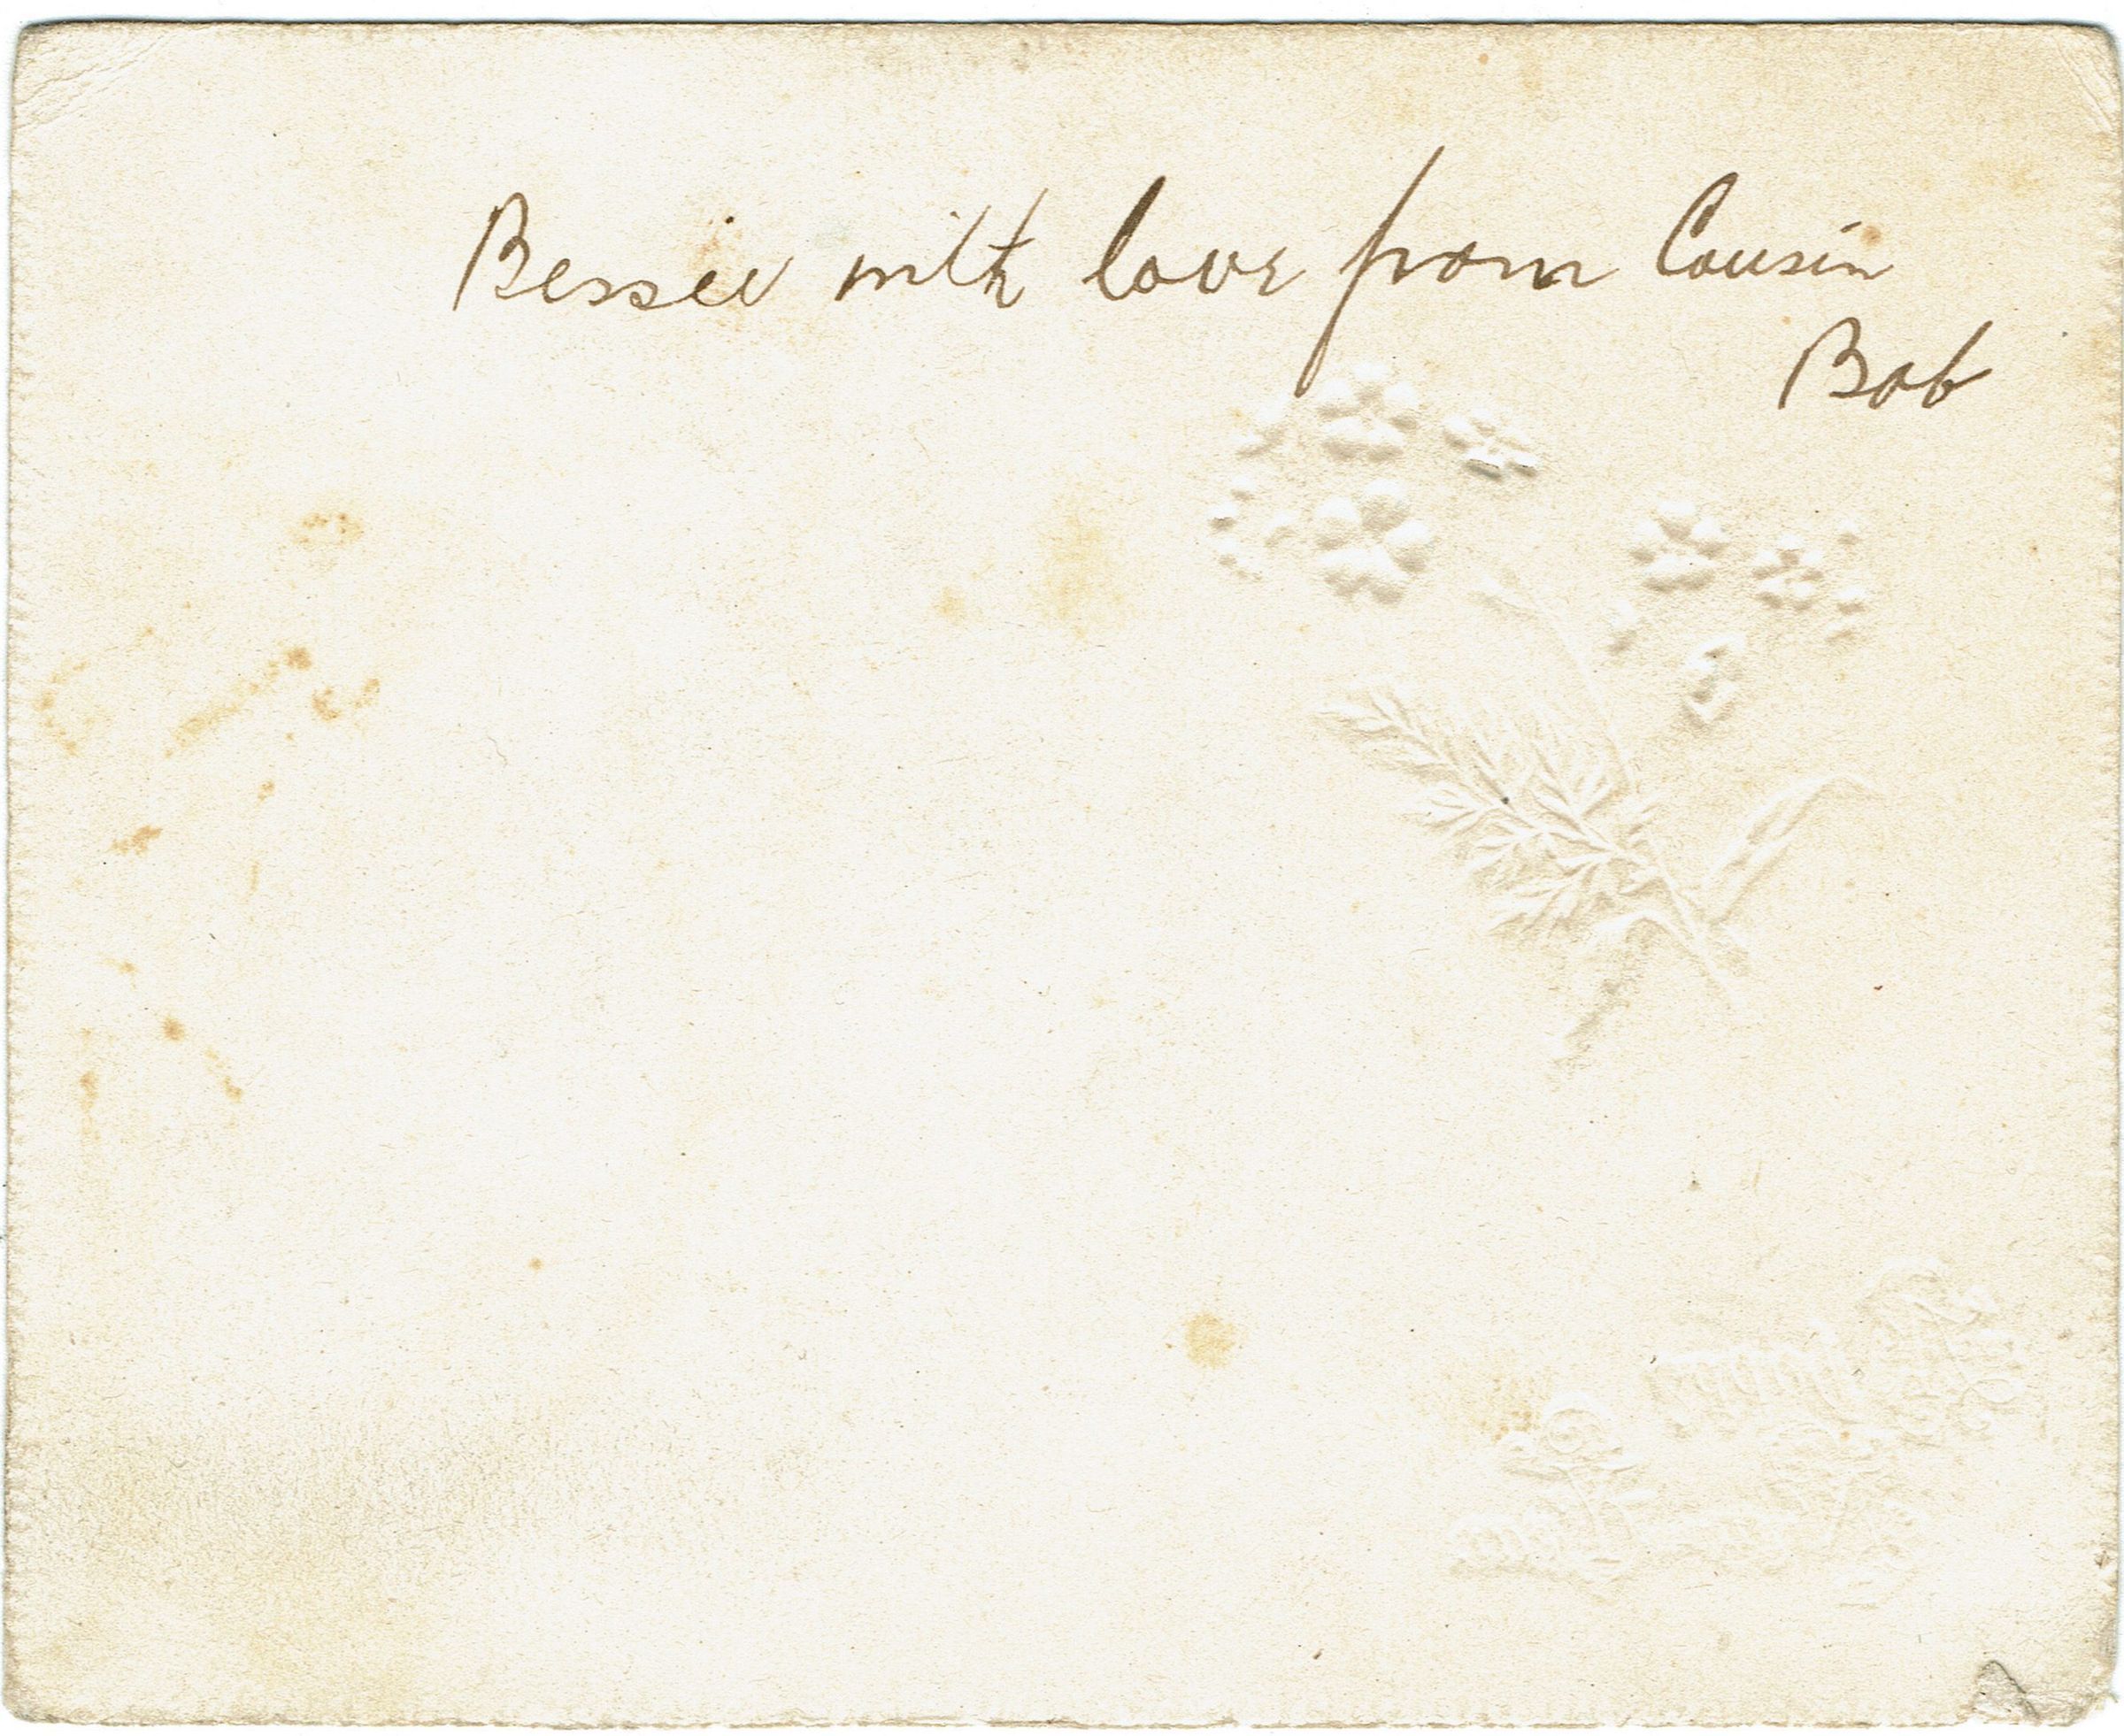 Bessie with love from Cousin
Bob